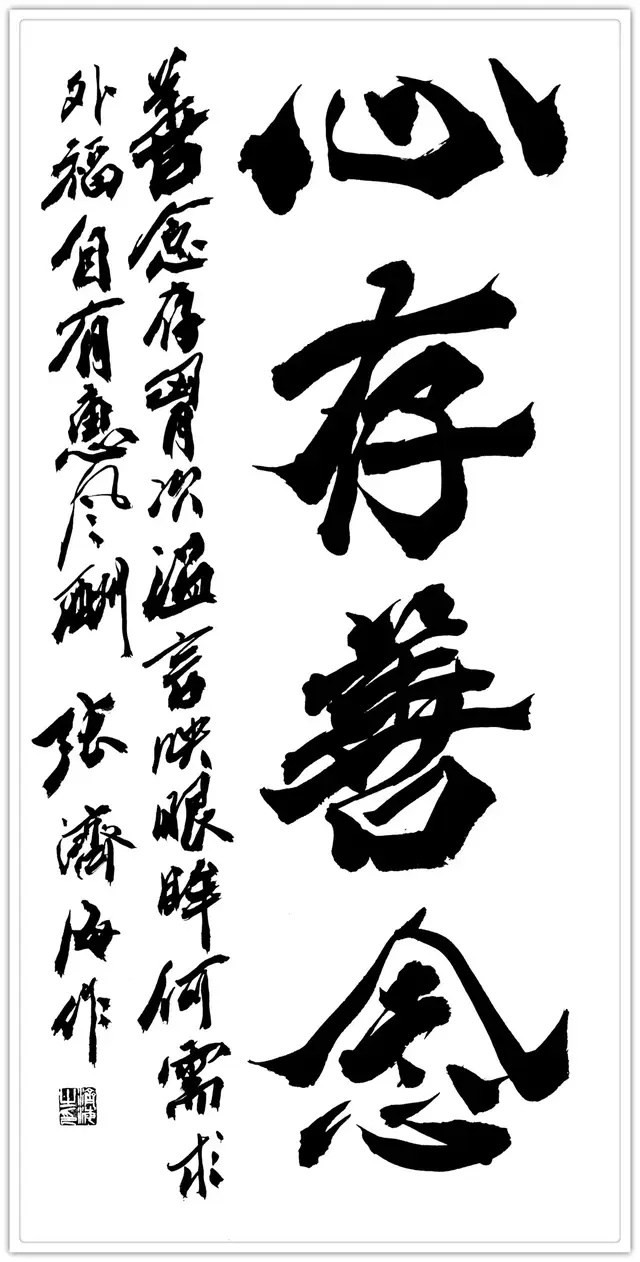 心存善念
善念存胷次温言映眼眸何需求
外福自有惠风酬 张濟海作
濟海之印